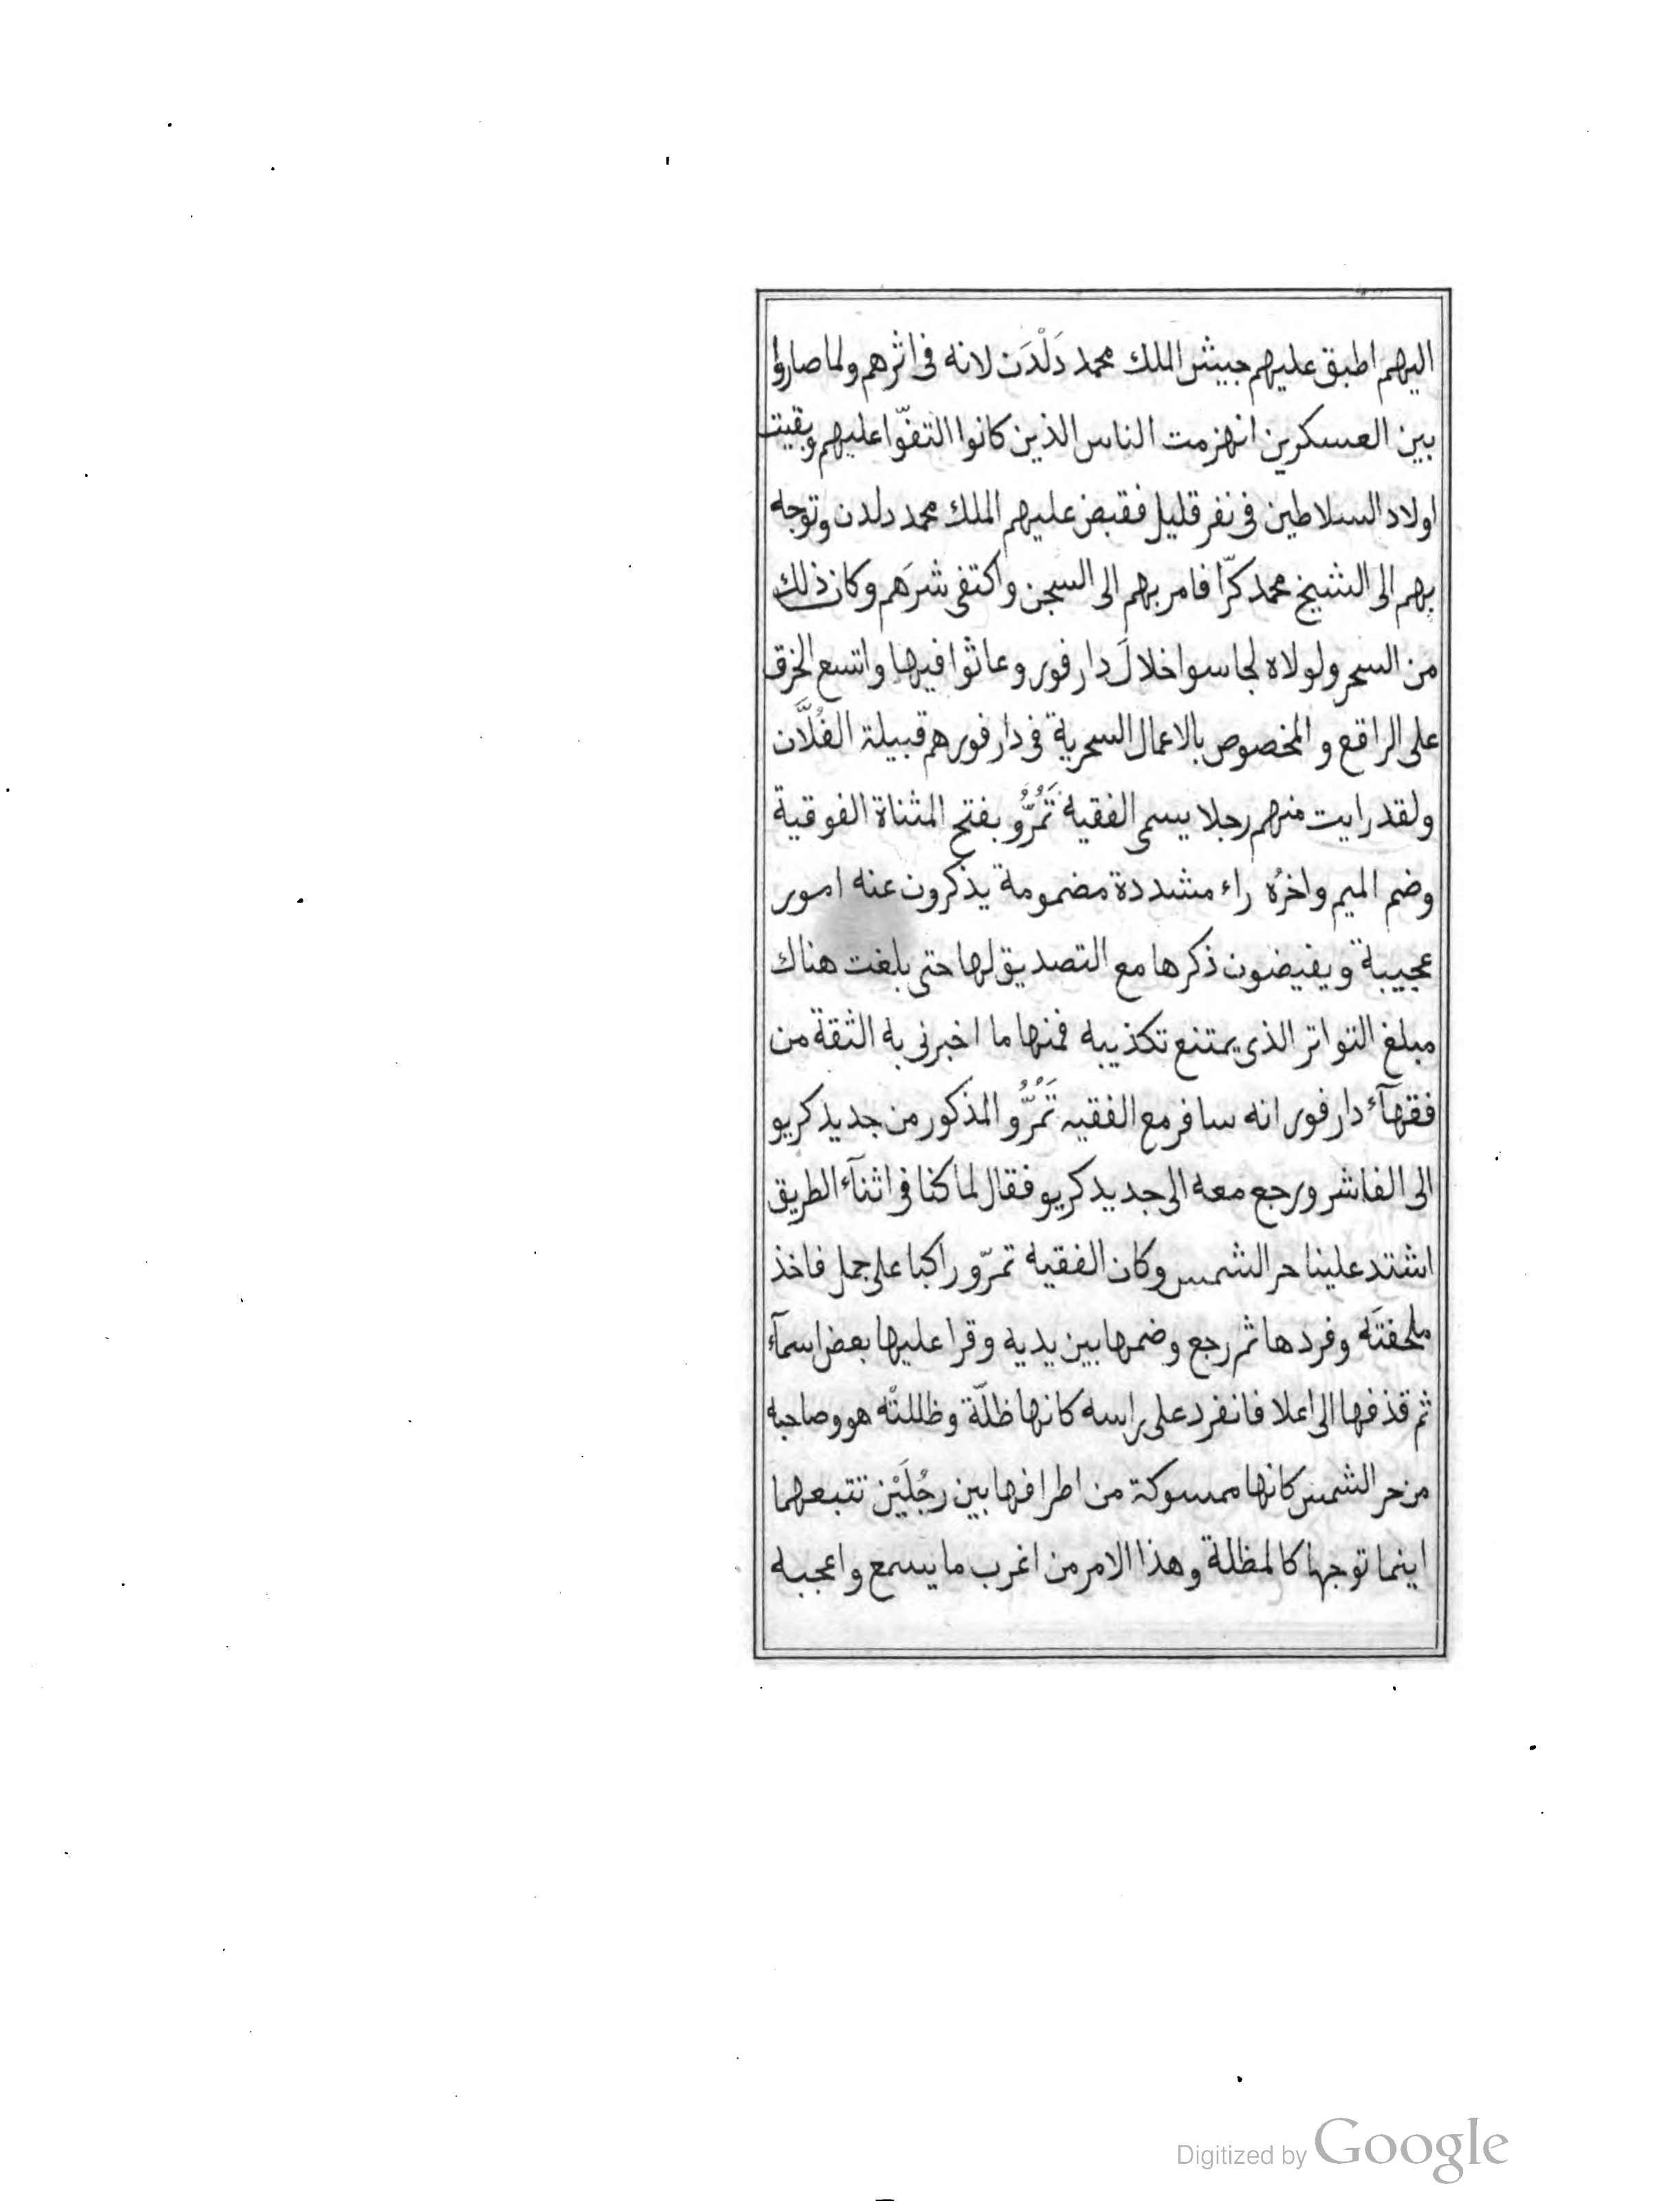 اليهم اطبق عليهم جيش الملك محمد دَلْدَن لانه فى اثرهم ولما صاروا
بين العسكرين انهزمت الناس الذين كانوا التفّوا عليهم وبقيت
اولاد السلاطين فى نفر قليل فقبض عليهم الملك محمد دلدن وتوجه
بهم الى الشيخ محمد كرّا فامر بهم الى السجن واكتفى شرَهم وكان ذلك
من السحر ولولاه لجاسوا خلالَ دار فور وعاثوا فيها واتسع الخرق
على الراقع والمخصوص بالاعمال السحرية فى دار فور هم قبيلة الفُلَّان
ولقد رايت منهم رجلا يسمى الفقيه تَمُرُّو بفتح المثناة الفوقية
وضم الميم واخرُه راء مشددة مضمومة يذكرون عنه امور
عجيبة ويفيضون ذكرها مع التصديق لها حتى بلغت هناك
مبلغ التواتر الذى يمتنع تكذيبه فمنها ما اخبرنى به الثقة من
فقهآء دار فور انه سافر مع الفقيه تَمُرُّو المذكور من جديد كريو
الى الفاشر ورجع معه الى جديد كريو فقال لما كنا فى اثنآء الطريق
اشتد علينا حر الشمس وكان الفقيه تمرّو راكبا على جمل فاخذ
ملحفتَه وفردها ثم رجع وضمها بين يديه وقرا عليها بعض اسمآء
ثم قذفها الى اعلا فانفرد على راسه كانها ظلّة وظللتْه هو وصاحبه
من حر الشمس كانها ممسوكة من اطرافها بين رجُلَيْن تتبعهما
اينما توجها كالمظلة وهذا الامر من اغرب ما يسمع واعجبه
Digitized by Google